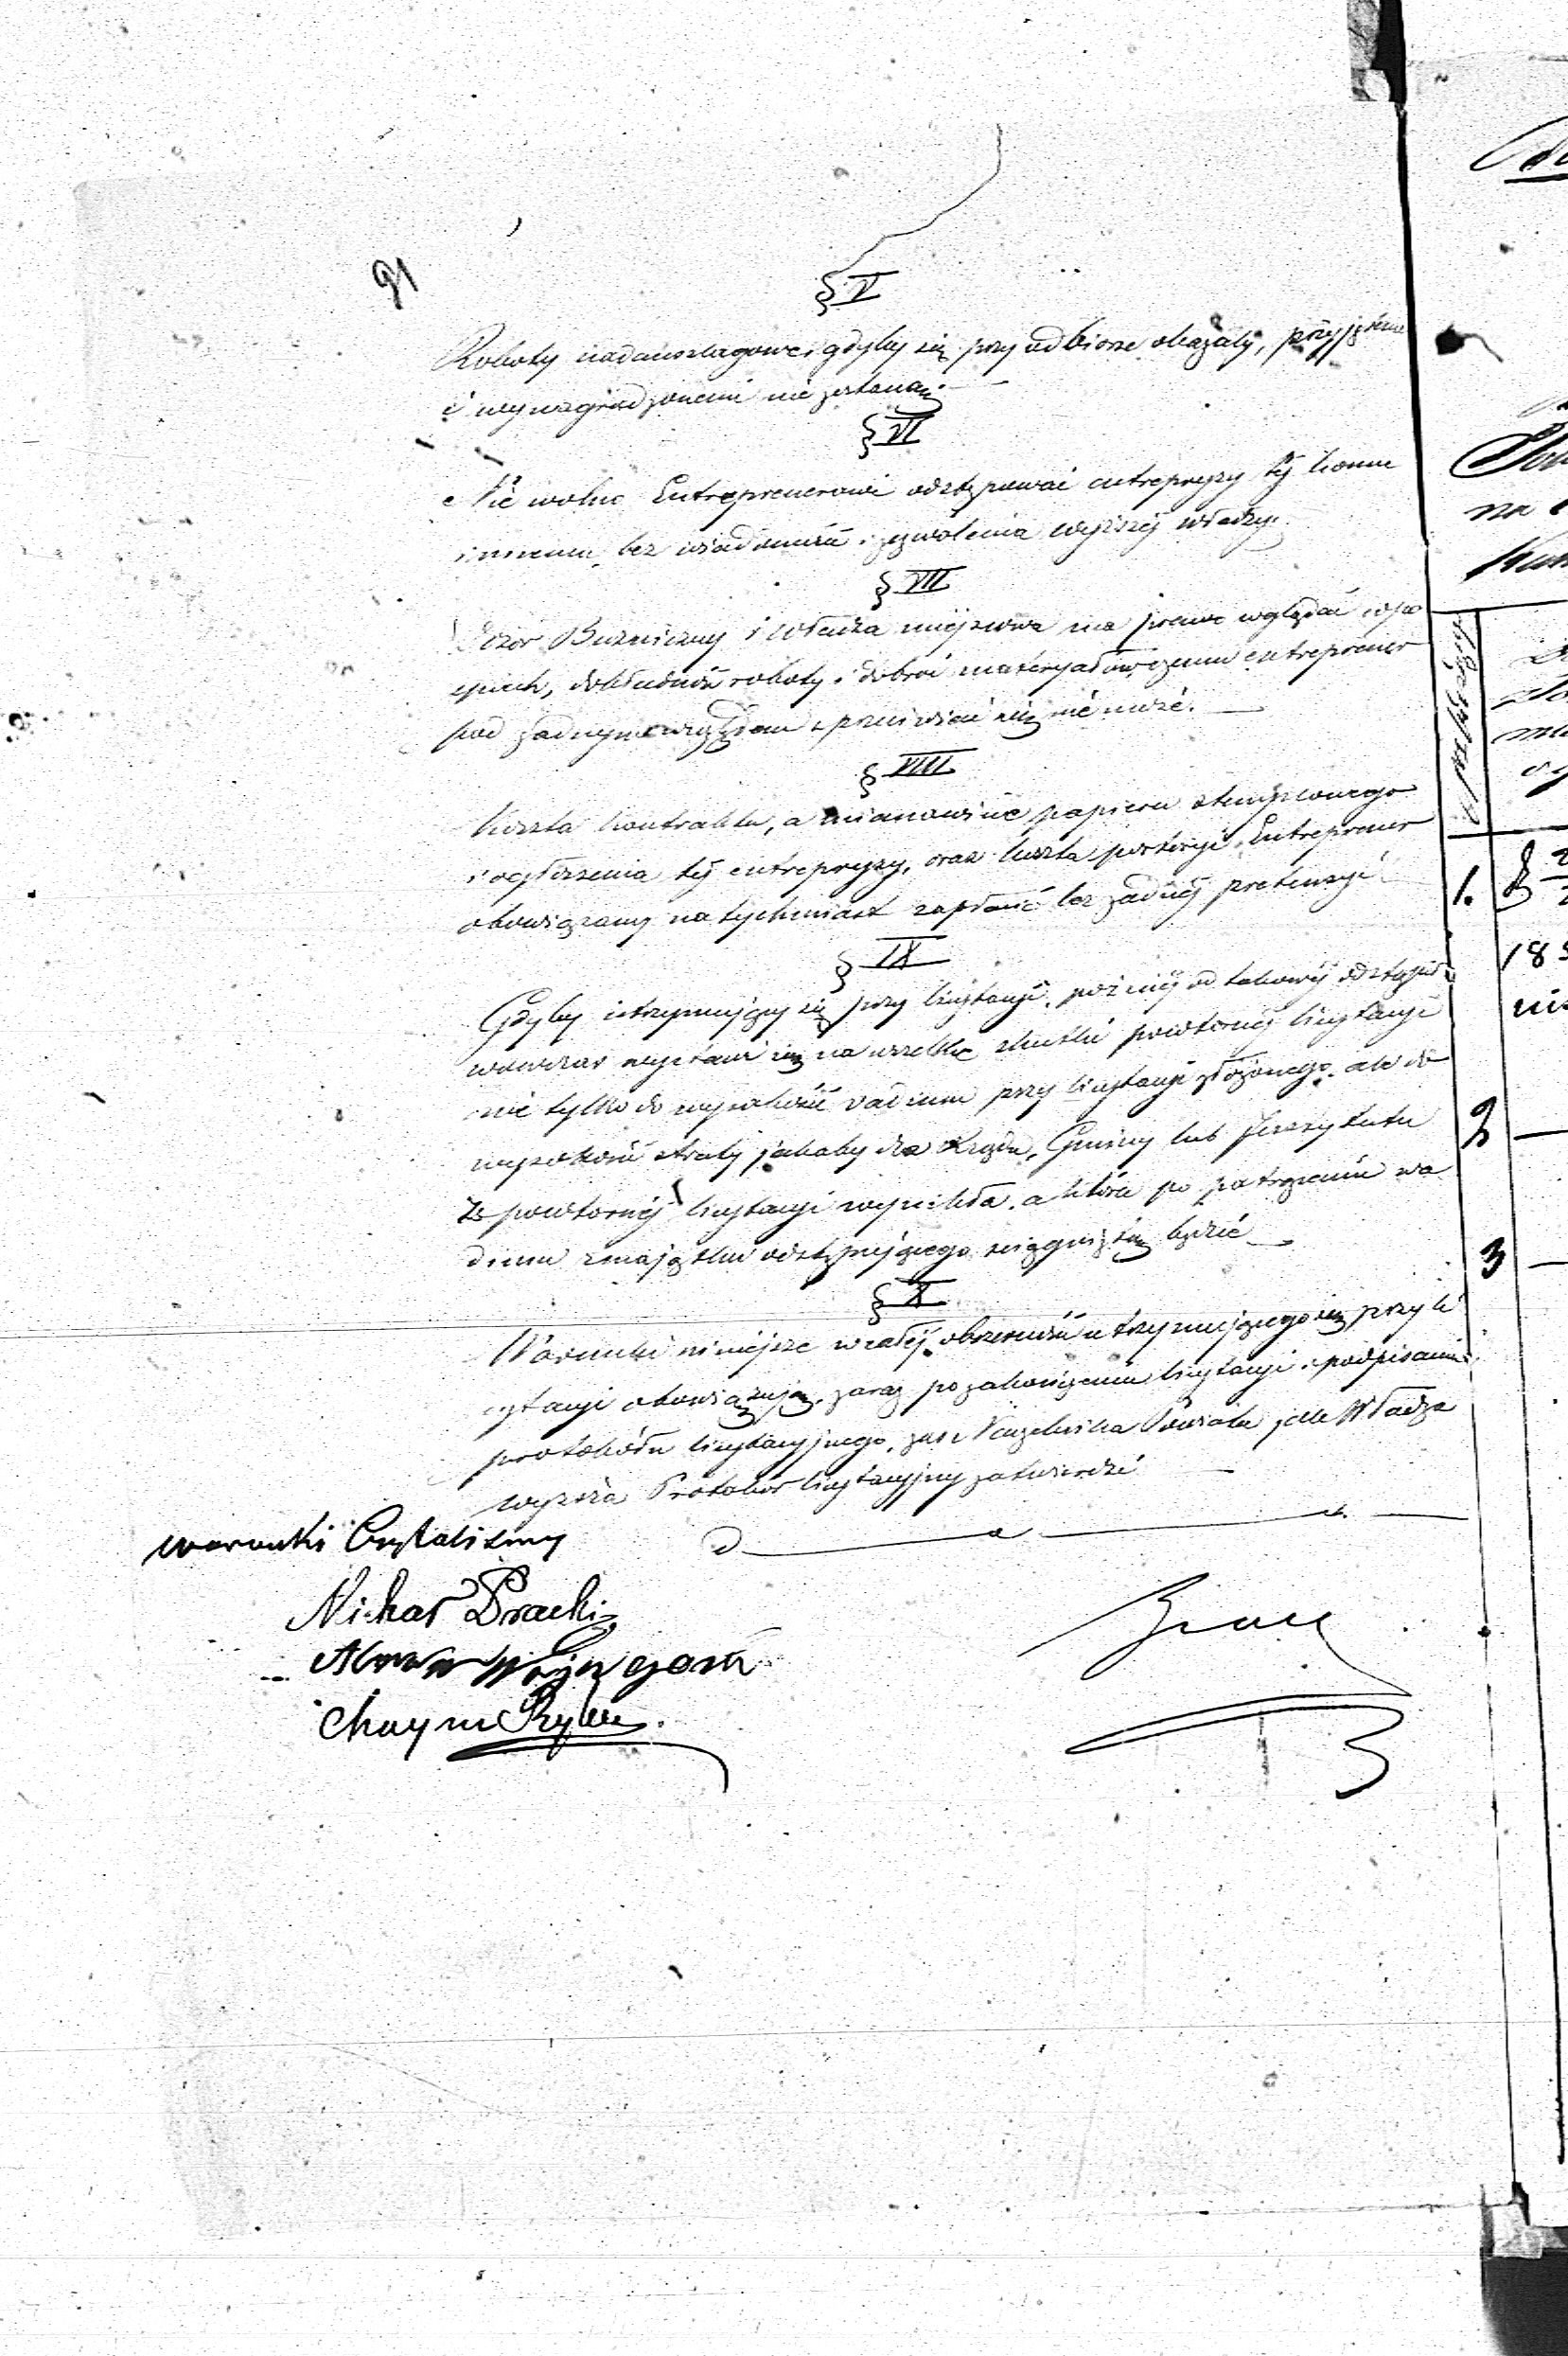 91
§ V
Roboty nadanszlagowe, gdyby się przy odbiorze okazały, przyjęteme
i wynagrodzonemi nie zostaną.
§ VI
Nie wolno Entreprenerowi odstępować entrepryzy téj komu
innemu, bez wiadomości i zezwolenia wyższéj władzy.
§ VII
Dozór Bużniczny i Władza miejscowa ma prawo wglądać w po
śpiech, dokładność roboty i dobroć materyałów, czemu entreprener
pod żadnym względem sprzeciwić się nié może.
§ VIII
Koszta kontraktu, a mianowicie papieru stemplowego
i ogłoszenia téj entrepryzy, oraz koszta portoryi, Entreprener
obowiązany natychmiast zapłacić bez żadnéj pretensyi
§ IX
Gdyby utrzymujący się przy licytacyi, poźniéj od takowéj odstąpił
wowczas wystawi się na wszelkie skutki powtornéj licytacyi
nie tylko do wysokości vadium przy licytacyi złożonego, ale do
wysokości straty jakaby dla Rządu, Gminy lub Instytutu
Ze powtornéj licytacyi wynikła, a która po potrąceniu va
dium z majątku odstępującego ściągniętą będzie
§ X
Warunki niniejsze w całéj obszerności utrzymującego się przy li
cytacyi obowiązują, zaraz po zakończeniu licytacyi i podpisaniu
protokółu licytacyjnego, zaś Naczelnika Powiatu jak Władza
wyższa Protokół licytacyjny zatwierdzi
warunki Czytalismy
Michał Dracki
Chaym Ryba
1.
185
2
3